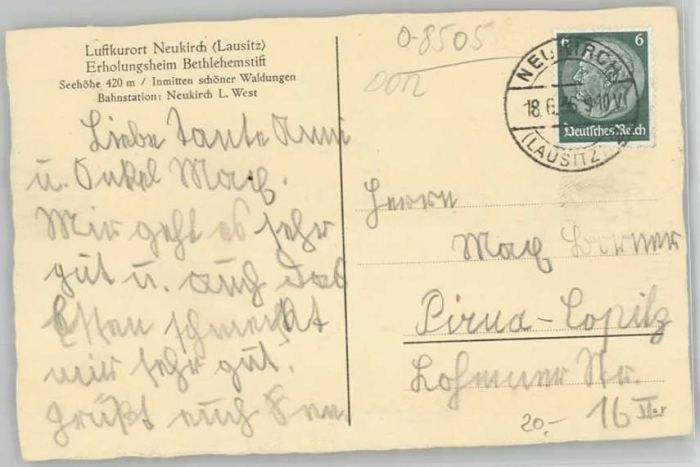 Luftkurort Neukirch (Lausitz)
Erholungsheim Bethlehemstift
Seehöhe 420 m / Inmitten schöner Waldungen
Bahnstation: Neukirch L. West
Liebe Tante Anni
u. Onkel Max.
Mir geht es sehr
gut u. auch das
Essen schmeckt
mir sehr gut.
Grüßt euch
0-8505
6 6
Deutsches Reich
NEUKIRCH
18.6.36
(LAUSITZ)
Herrn
Max
Pirna-Copitz
Lohmener Str.
16 II
20,-